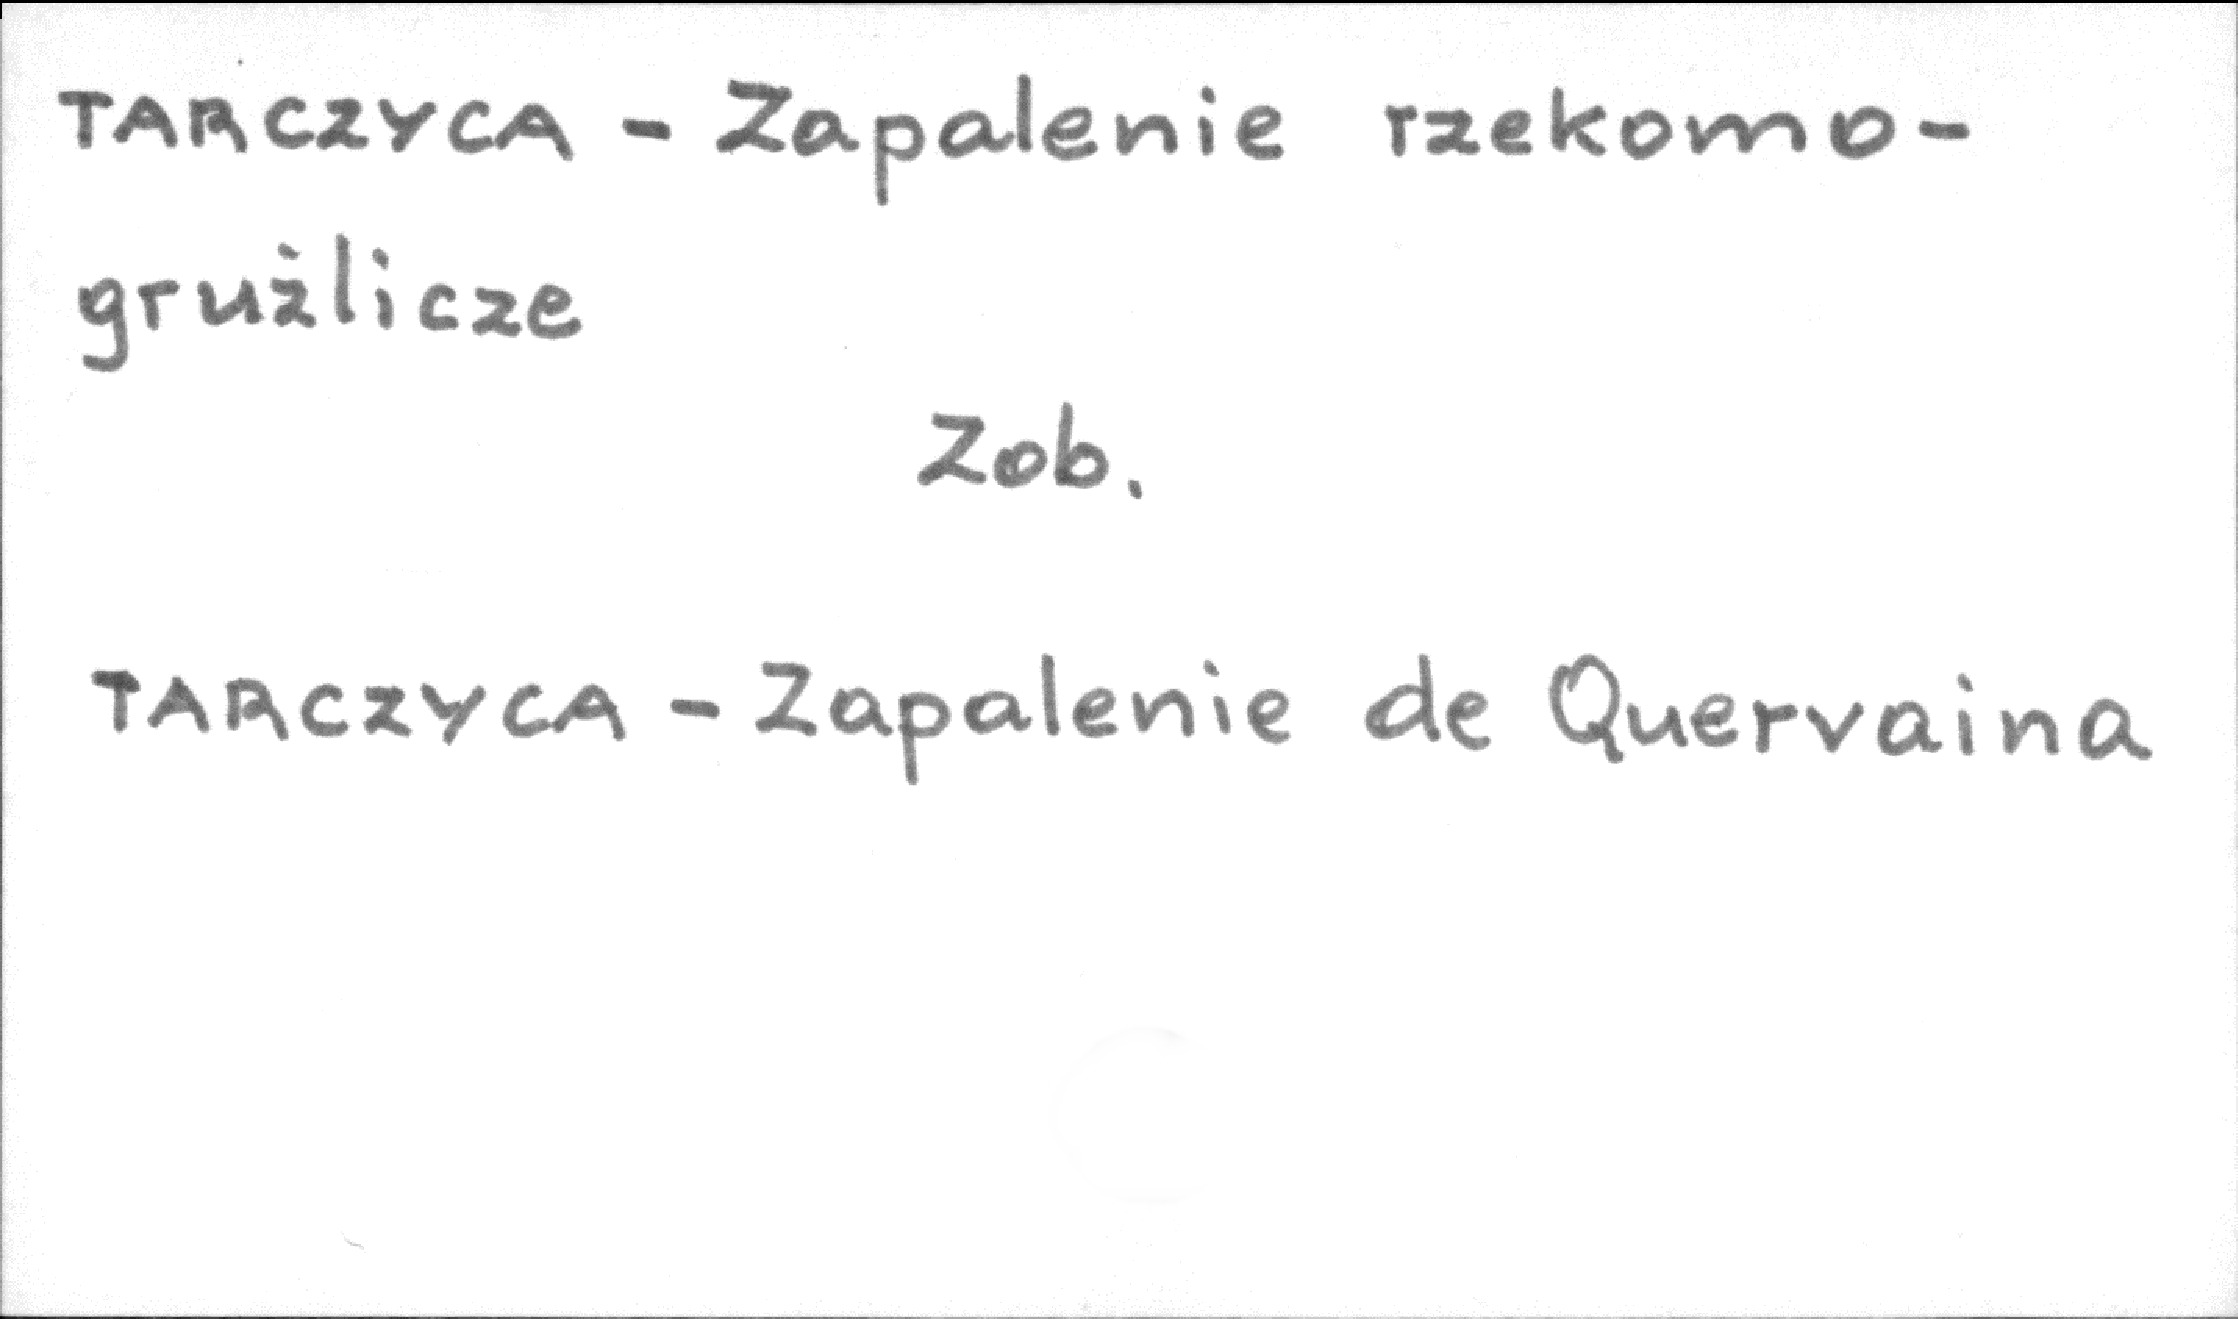 TARCZYCA - Zapalenie rzekomo-
gruźlicze
Zob.
TARCZYCA - Zapalenie de Quervaina